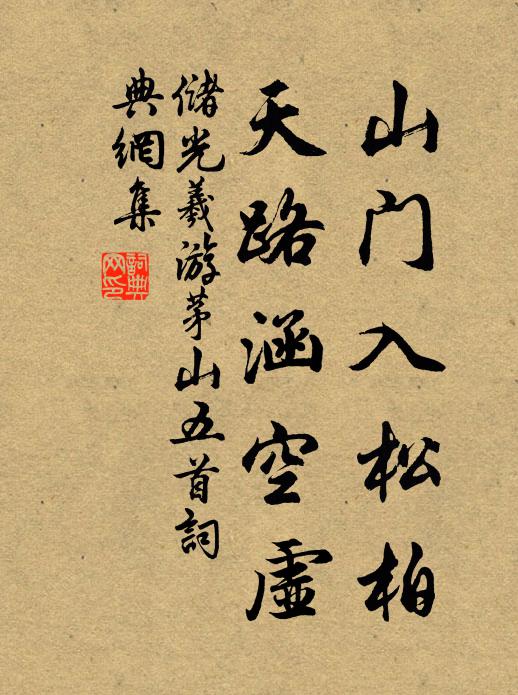 山门入松柏
天路涵空虚
储光羲游茅山五首词
典網集
詞典網印